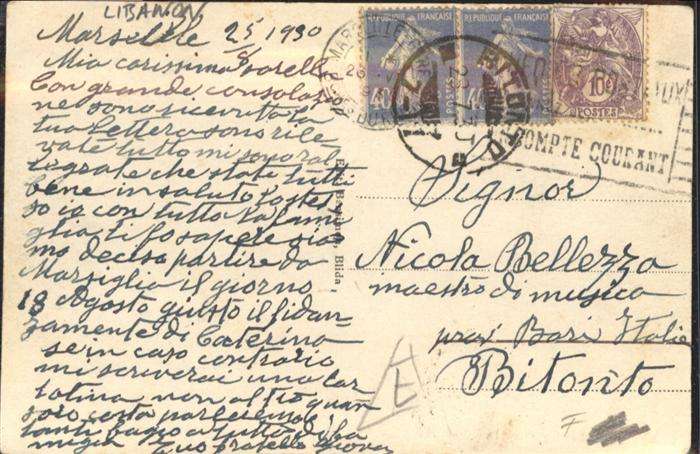 LIBANON
Marseille 25/6 1930
Mia carissima sorella
Con grande consolazio
ne sono ricevuta la
tua lettera sono rile
vate tutto mi sono ral
legrate che state tutti
bene in salute
so io con tutta la fami
glia ti fo sapere sia
mo deciso partire da
Marsiglia il giorno
18 Agosto giusto il fidan
zamento di Caterina
se in caso contrario
mi scriverai una car
tolina non altro
tanti baci a tutti di fa
miglia tuo fratello
Blida
REPUBLIQUE FRANÇAISE
40
REPUBLIQUE FRANÇAISE
40
10c
POSTES
MARSEILLE
BITONTO
COMPTE COURANT
Signor
Nicola Bellezza
maestro di musica
prov Bari Italia
Bitonto
F